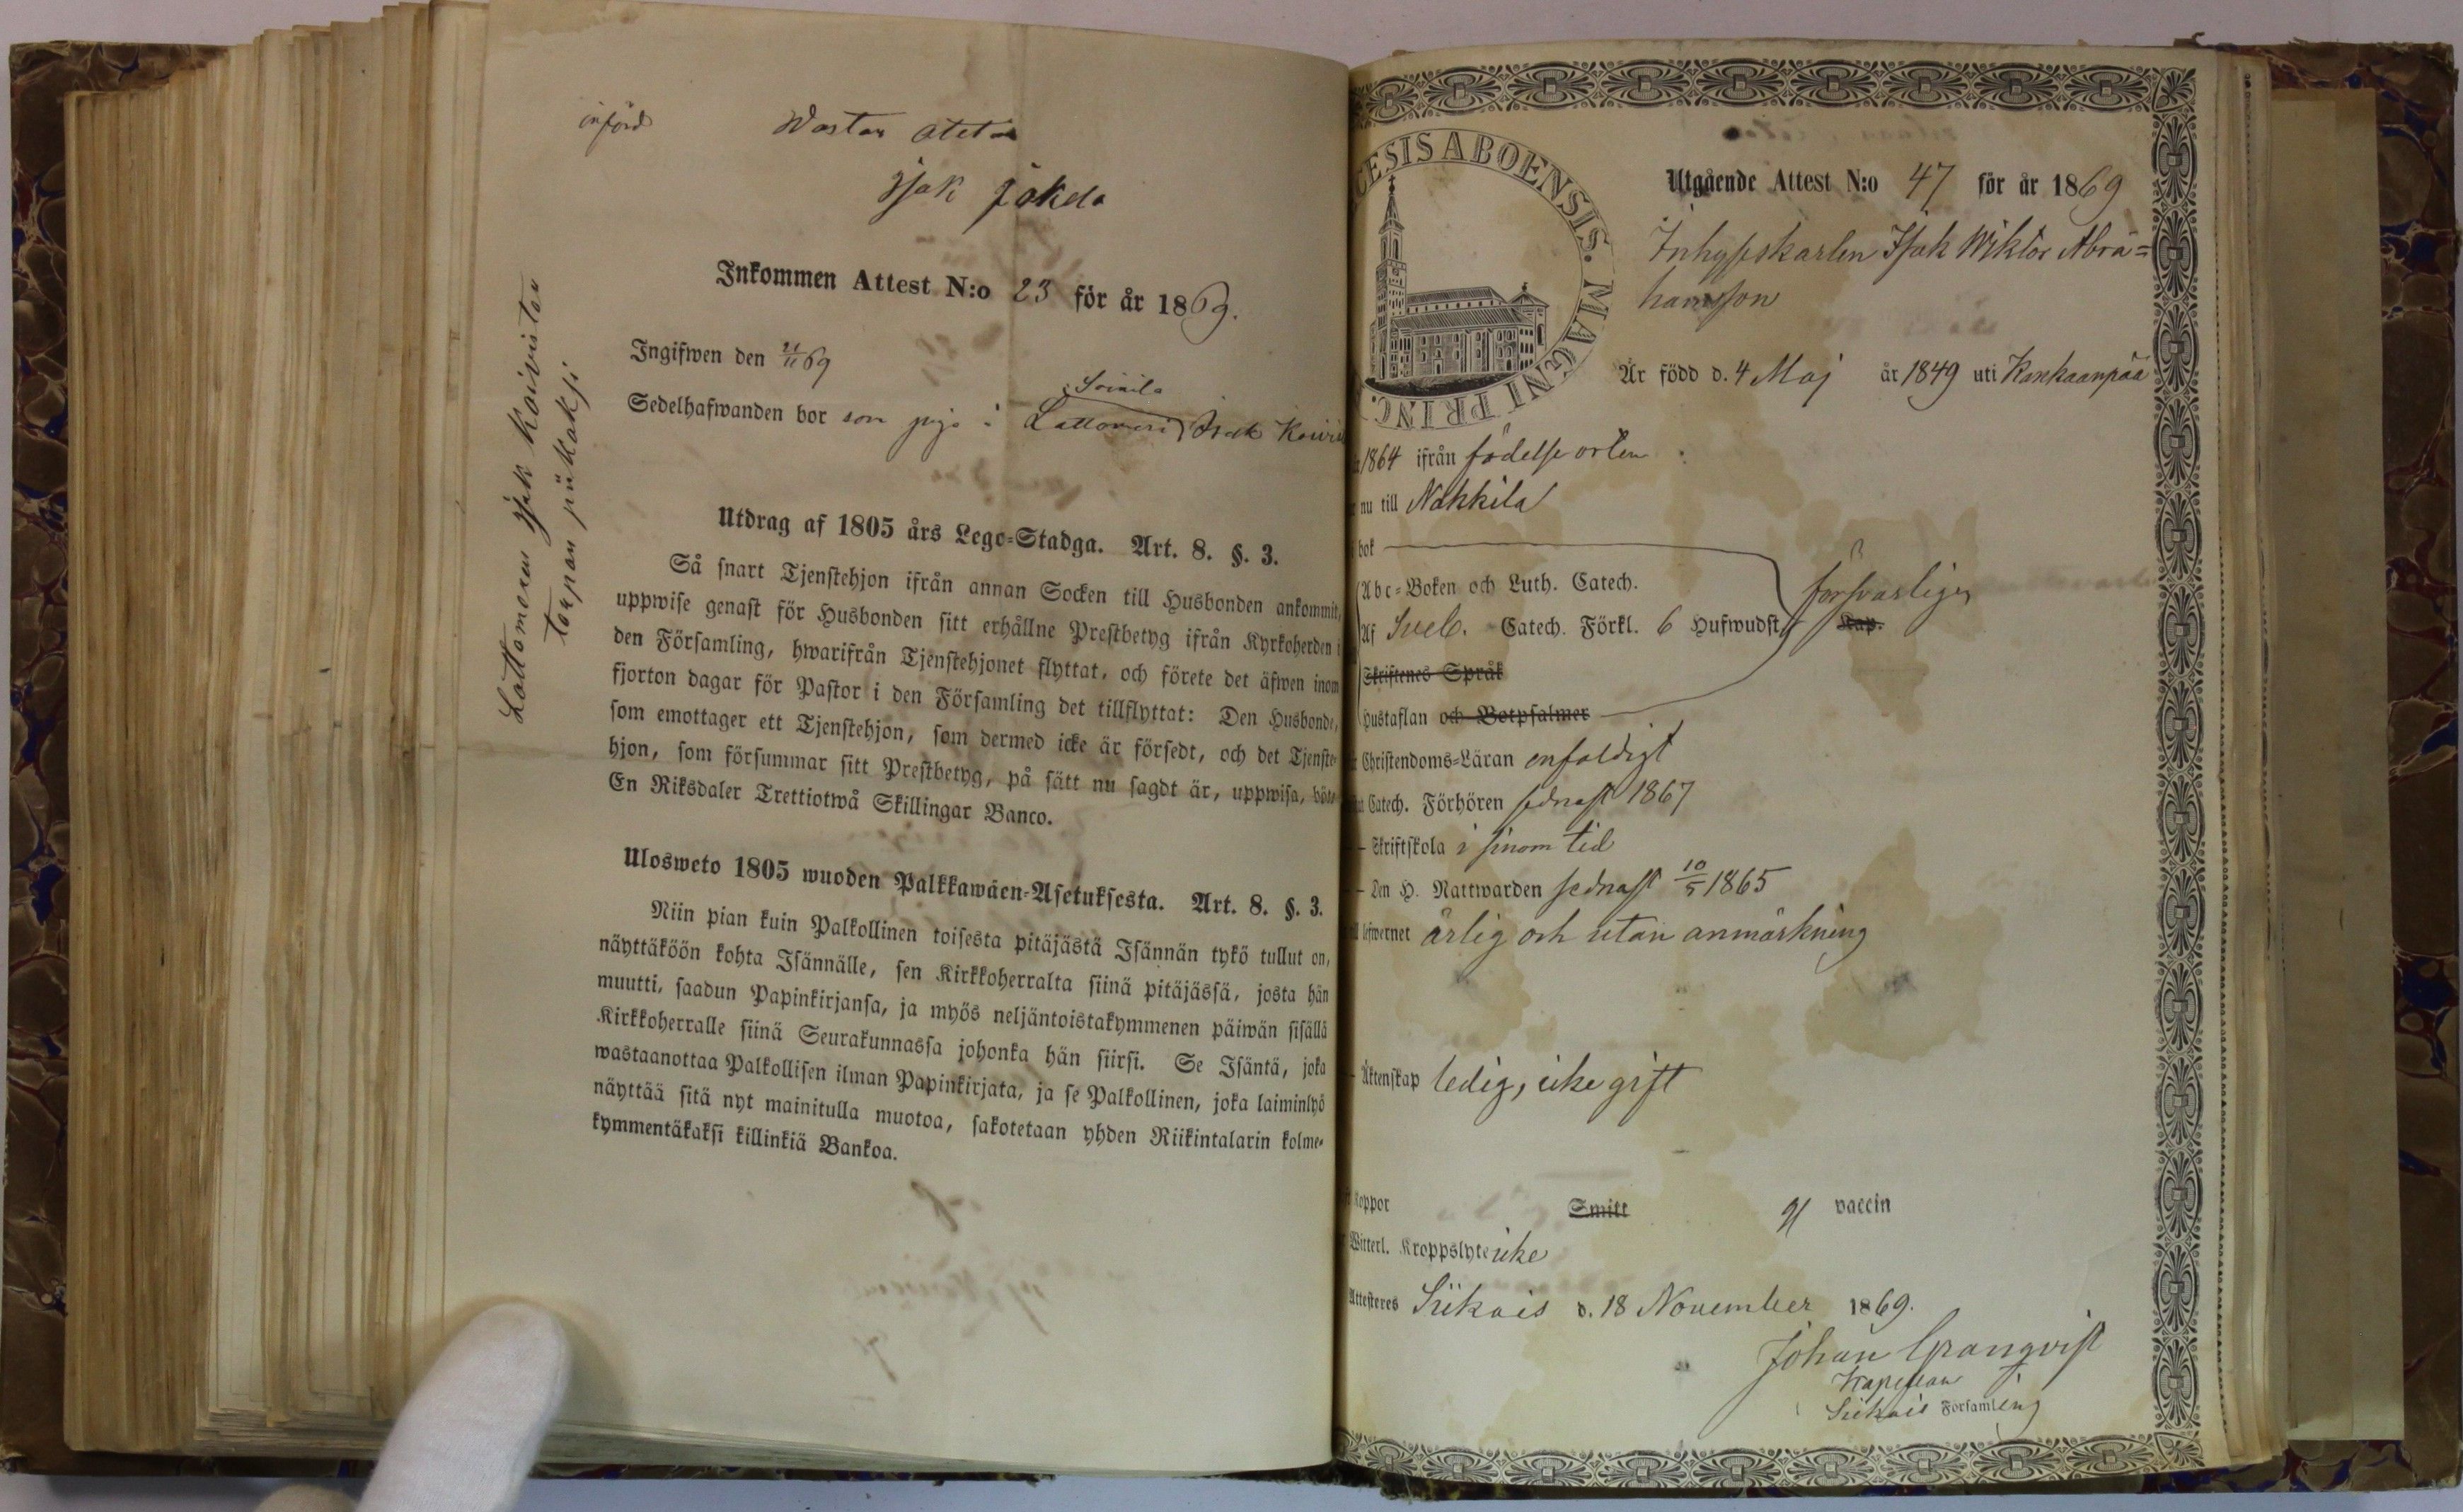 införd
Wastan otetan
Isak Jokela
Inkommen Attest N:o 23 för år 1869.
Ingifwen den 21/11 69
Soinila
Sedelhafwanden bor som piga i Lattomeri Isak Koivi
Lattomeren Isak Koiviston
torpan piikaksi
Utdrag af 1805 års Lego-Stadga. Art. 8. §. 3.
Så snart Tjenstehjon ifrån annan Socken till Husbonden ankommit,
uppwise genast för Husbonden sitt erhållne Prestbetyg ifrån Kyrkoherden i
den Församling, hwarifrån Tjenstehjonet flyttat, och förete det äfwen inom
fjorton dagar för Pastor i den Församling det tillflyttat: Den Husbonde,
som emottager ett Tjenstehjon, som dermed icke är försedt, och det Tjenste-
hjon, som försummar sitt Prestbetyg, på sätt nu sagdt är, uppwisa, böte
En Riksdaler Trettiotwå Skillingar Banco.
Ulosweto 1805 wuoden Palkkawäen-Asetuksesta. Art. 8. §. 3.
Niin pian kuin Palkollinen toisesta pitäjästä Isännän tykö tullut on,
näyttäköön kohta Isännälle, sen Kirkkoherralta siinä pitäjässä, josta hän
muutti, saadun Papinkirjansa, ja myös neljäntoistakymmenen päiwän sisällä
Kirkkoherralle siinä Seurakunnassa johonka hän siirsi. Se Isäntä, joka
wastaanottaa Palkollisen ilman Papinkirjata, ja se Palkollinen, joka laiminlyö
näyttää sitä nyt mainitulla muotoa, sakotetaan yhden Riikintalarin kolme-
kymmentäkaksi killinkiä Bankoa.
CESIS ABOENSIS. MAGNI PRINC.
Utgående Attest N:o 47 för år 1869
Inhyseskarlen Isak Wiktor Abra=
hamsson
Är född d. 4 Maj år 1849 uti Kankaanpää
1864 ifrån födelse orten
nu till Nakkila
bok
Abc-Boken och Luth. Catech. försvarligen
Af Sveb. Catech. Förkl. 6 Hufwudst. Kap.
Skriftenes Språk
Hustaflan och Botpsalmer
Christendoms-Läran enfaldigt
Catech. Förhören sednast 1867
Skriftskola i sinom tid
Den H. Nattwarden sednast 10/5 1865
lefwernet ärlig och utan anmärkning
Äktenskap ledig, icke gift
koppor Smitt vaccin
Witterl. Kroppslyte icke
Attesteres Siikais d. 18 November 1869.
Johan Granqvist
Kapellan
Siikais Församling